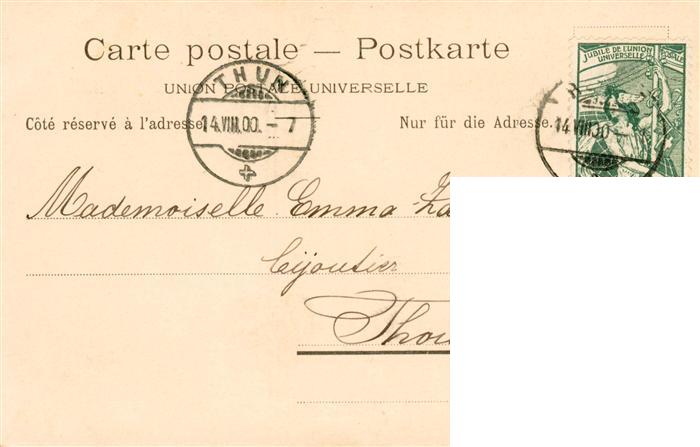 Carte postale — Postkarte
UNION POSTALE UNIVERSELLE
JUBILÉ DE L'UNION
UNIVERSELLE POSTALE
THUN
14.VIII.00.-7
14.VIII.00
Côté réservé à l'adresse.
Nur für die Adresse.
Mademoiselle Emma
bijoutier